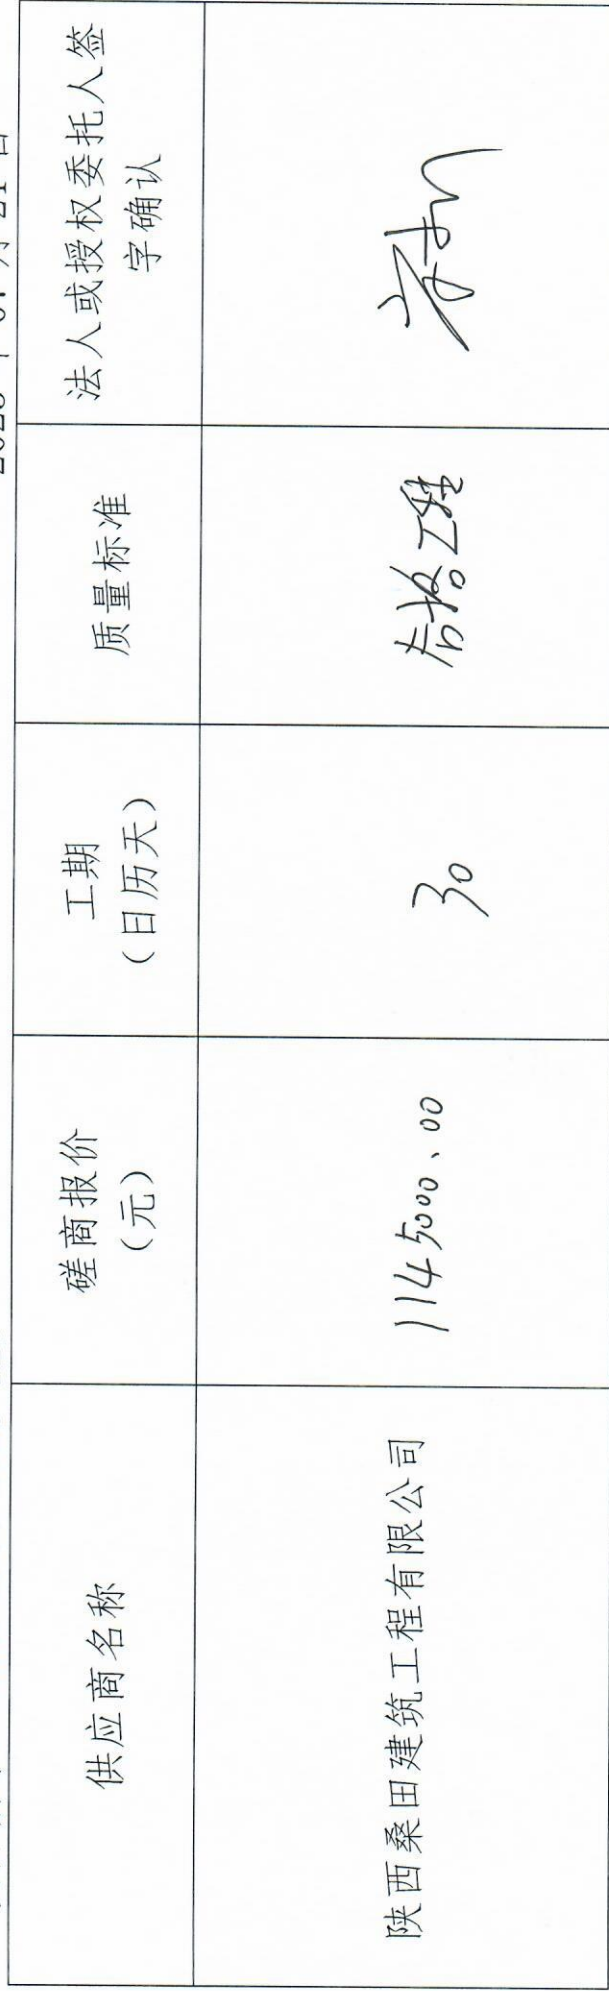 供应商名称
磋商报价
（元）
工期
（日历天）
质量标准
法人或授权委托人签
字确认
陕西桑田建筑工程有限公司
1145000.00
30
合格工程